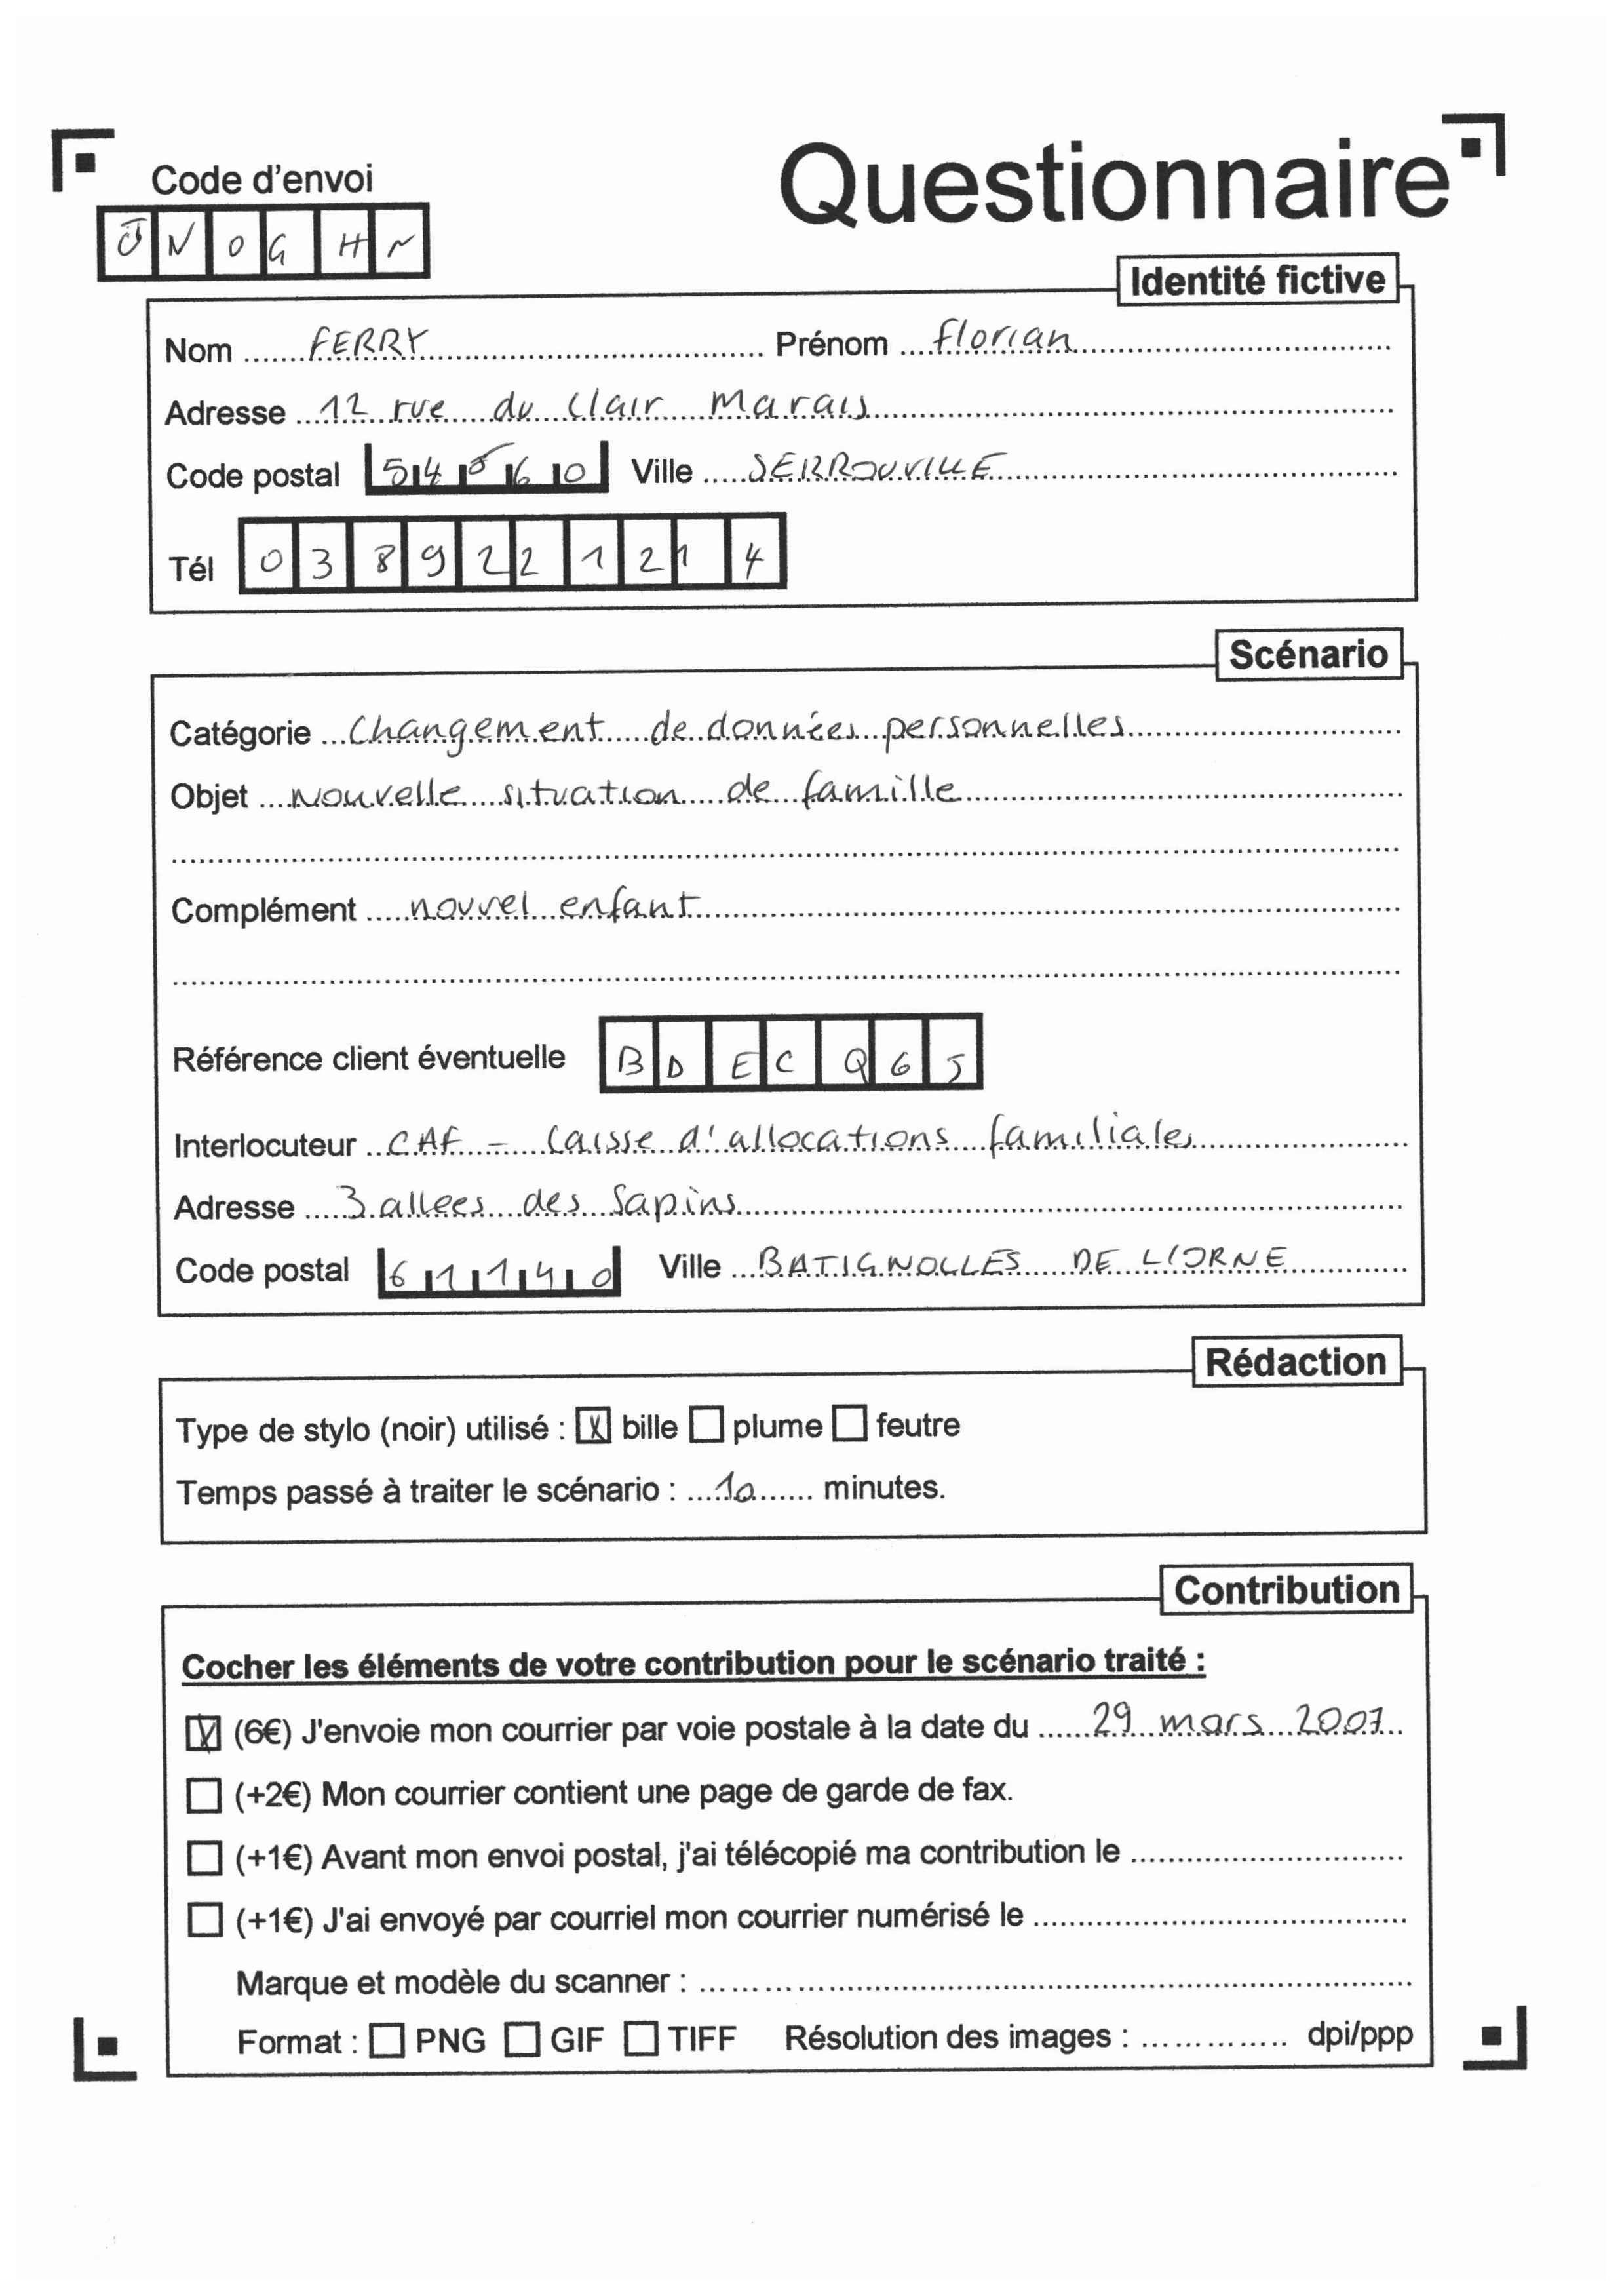 Questionnaire
Code d'envoi
N O G H N
Identité fictive
Nom FERRY Prénom florian
Adresse 12 rue du Clair Marais
Code postal 54560 Ville SERROUVILLE
Tél 0389221214
Scénario
Catégorie Changement de données personnelles
Objet Nouvelle situation de famille
Complément nouvel enfant
Référence client éventuelle BDECQ65
Interlocuteur CAF - Caisse d'allocations familiales
Adresse 3 allees des Sapins
Code postal 61140 Ville BATIGNOLLES DE L'ORNE
Rédaction
Type de stylo (noir) utilisé : ☒ bille ☐ plume ☐ feutre
Temps passé à traiter le scénario : 10 minutes.
Contribution
Cocher les éléments de votre contribution pour le scénario traité :
☒ (6€) J'envoie mon courrier par voie postale à la date du 29 mars 2007
☐ (+2€) Mon courrier contient une page de garde de fax.
☐ (+1€) Avant mon envoi postal, j'ai télécopié ma contribution le
☐ (+1€) J'ai envoyé par courriel mon courrier numérisé le
Marque et modèle du scanner :
Format : ☐ PNG ☐ GIF ☐ TIFF Résolution des images : dpi/ppp